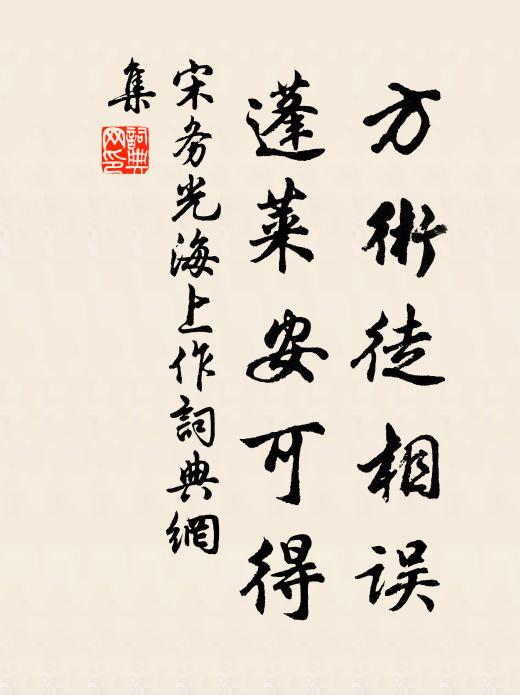 方術徒相误
蓬莱安可得
宋务光海上作詞典網
集
詞典網印